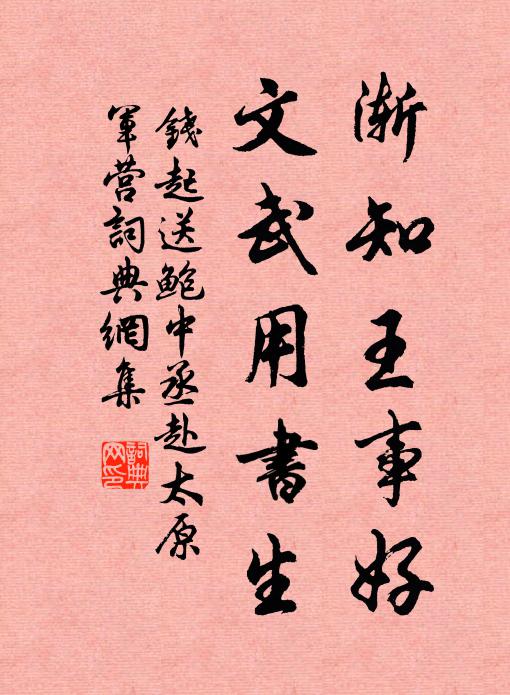 漸知王事好
文武用書生
錢起送鮑中丞赴太原
軍營詞典網集
詞典
网印